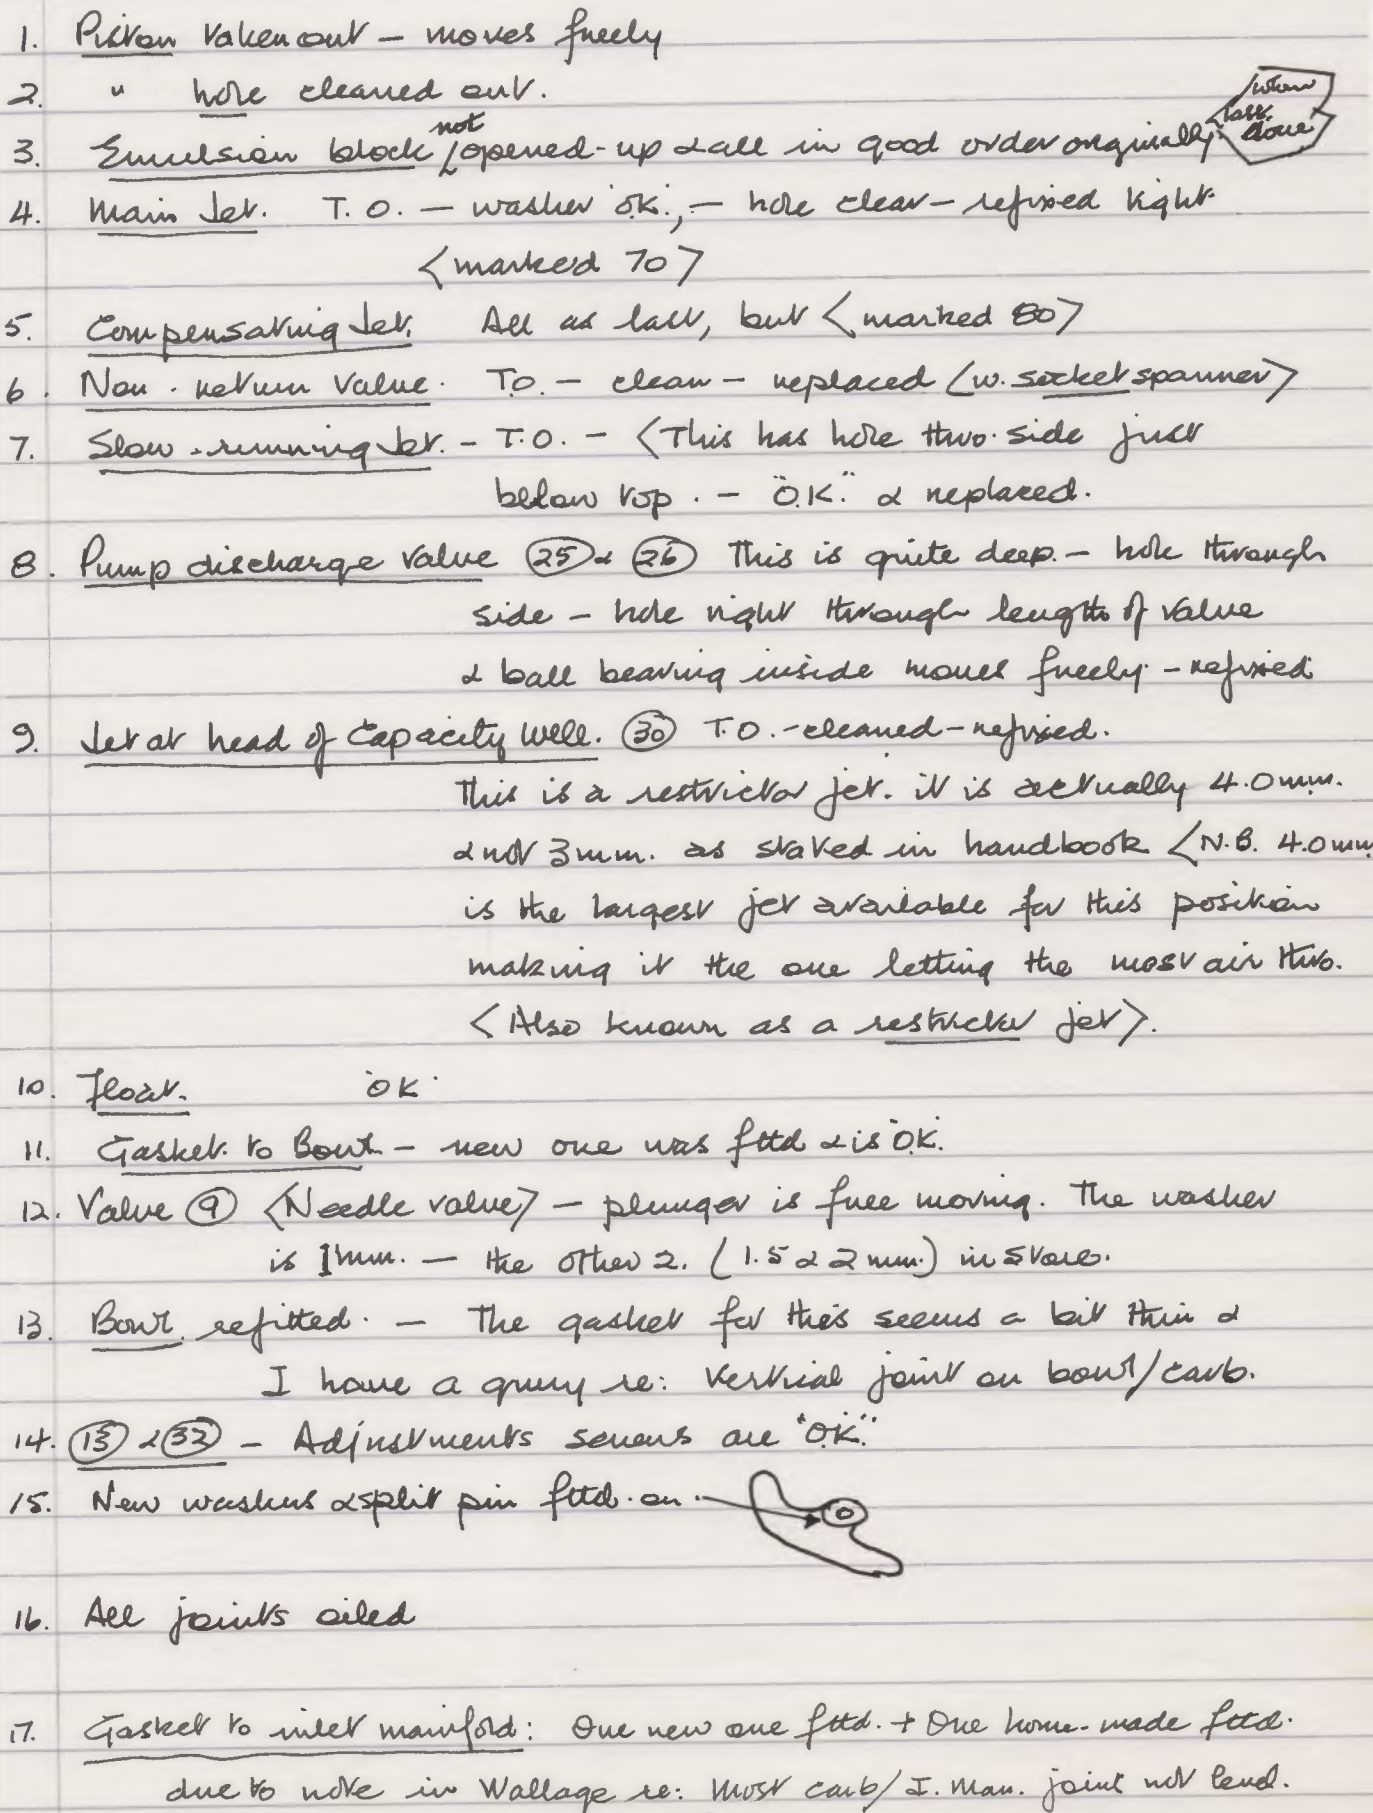 1. Piston taken out – moves freely
2. " hole cleaned out.
3. Emulsion block not opened-up & all in good order orginally <when last done>
4. Main Jet. T.O. – washer "OK", – hole clear – refixed tight.
<marked 70>
5. Compensating Jet. All as last, but <marked 80>
6. Non-return Valve. T.O. – clean – replaced <w. socket spanner>
7. Slow-running Jet. – T.O. – <This has hole thro. side just
below top. – "O.K." & replaced.
8. Pump discharge valve (25) & (26) This is quite deep. – hole through
side – hole right through length of valve
& ball bearing inside moves freely – refixed
9. Jet at head of Capacity Well. (30) T.O. – cleaned – refixed.
This is a restrictor jet. it is actually 4.0 mm.
& not 3 mm. as stated in handbook <N.B. 4.0 mm
is the largest jet available for this position
making it the one letting the most air thro.
<Also known as a restrictor jet>.
10. Float. "OK"
11. Gasket to Bowl – new one was fttd & is "O.K."
12. Valve (9) <Needle valve> – plunger is free moving. The washer
is 1 mm. – the other 2. (1.5 & 2 mm.) in store.
13. Bowl refitted. – The gasket for this seems a bit thin &
I have a query re: vertical joint on bowl/carb.
14. (13) & (32) – Adjustments screws are "O.K."
15. New washers & split pin fttd. on
16. All joints oiled
17. Gasket to inlet manifold: One new one fttd. + One home-made fttd.
due to note in Wallage re: Most carb/I. Man. joint not level.